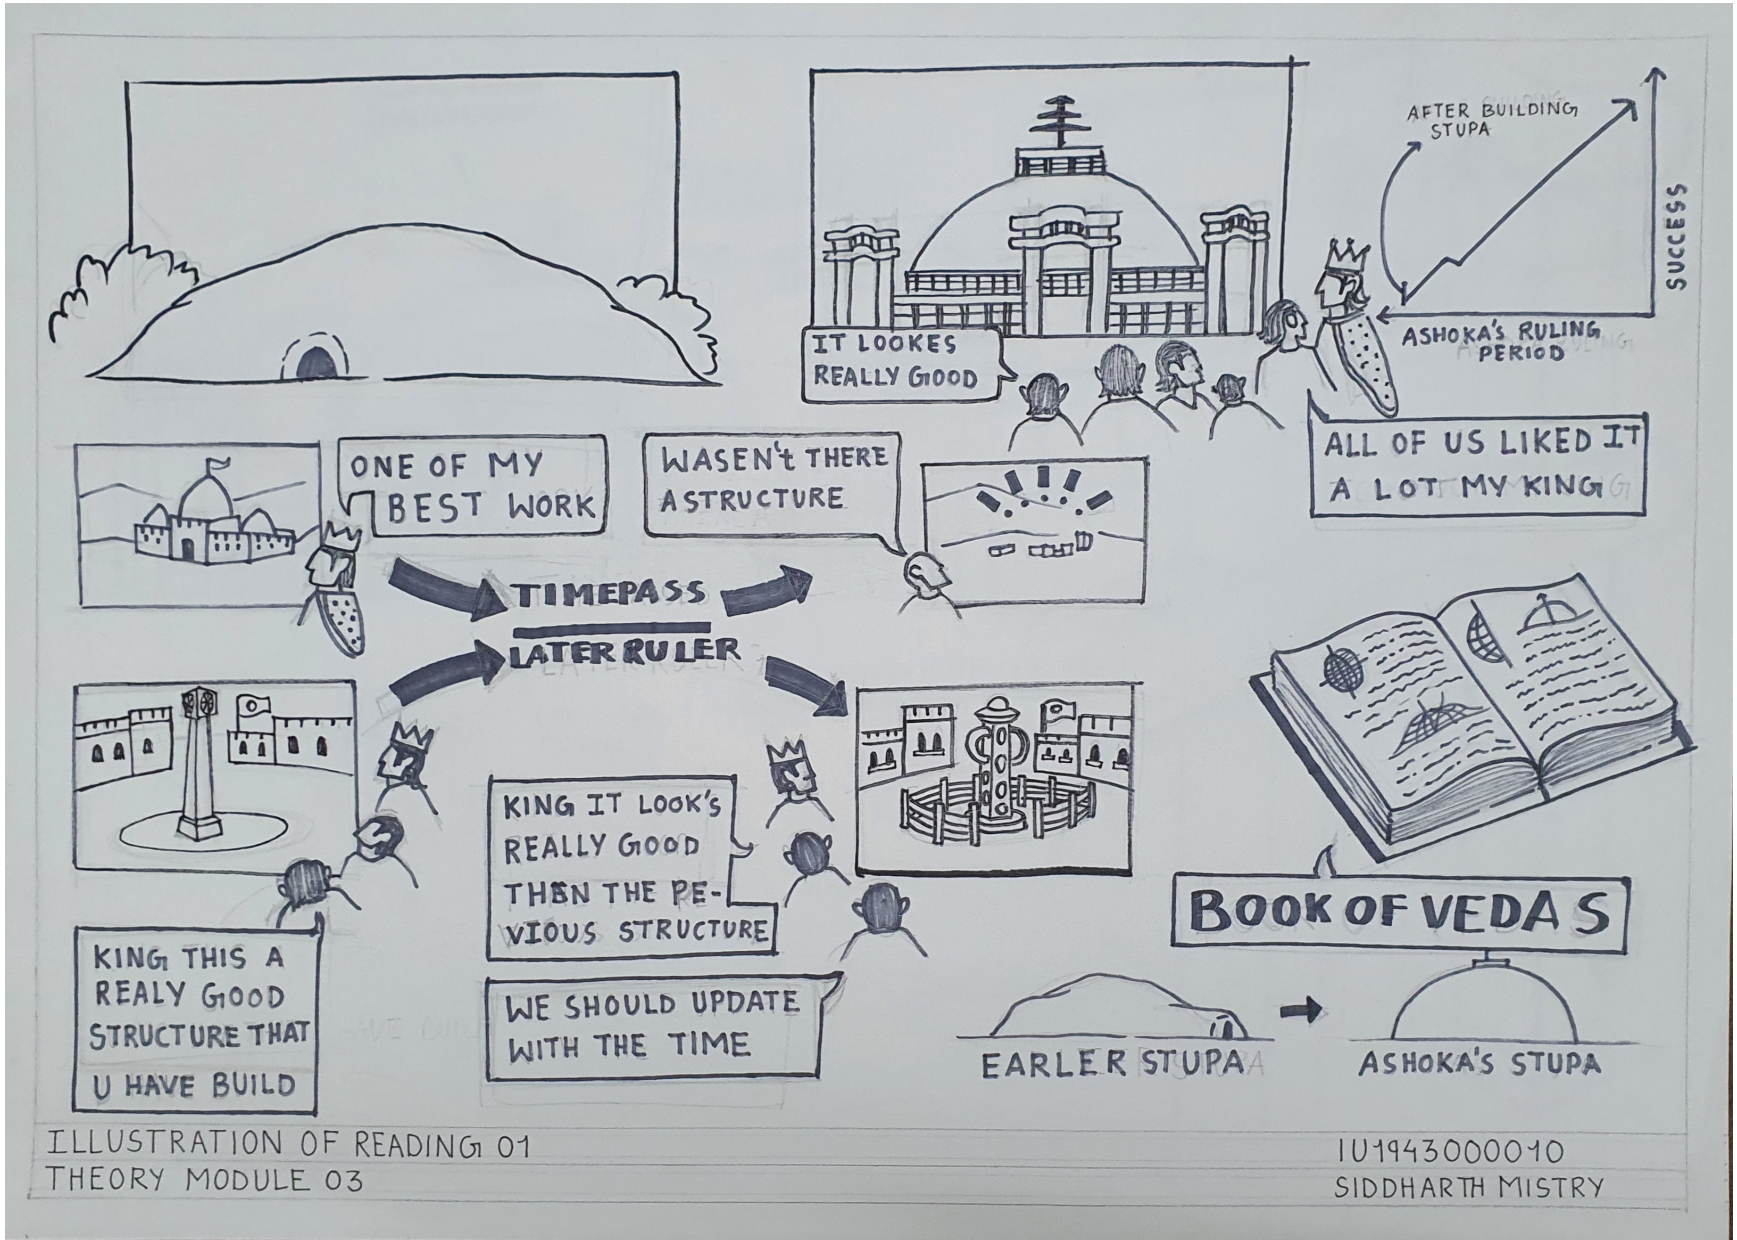 AFTER BUILDING
STUPA
SUCCESS
ASHOKA'S RULING
PERIOD
IT LOOKES
REALLY GOOD
ALL OF US LIKED IT
A LOT MY KING
ONE OF MY
BEST WORK
WASEN't THERE
A STRUCTURE
TIMEPASS
LATER RULER
KING IT LOOK'S
REALLY GOOD
THEN THE PE-
VIOUS STRUCTURE
WE SHOULD UPDATE
WITH THE TIME
KING THIS A
REALY GOOD
STRUCTURE THAT
U HAVE BUILD
BOOK OF VEDAS
EARLER STUPA
ASHOKA'S STUPA
ILLUSTRATION OF READING 01
THEORY MODULE 03
IU1943000010
SIDDHARTH MISTRY